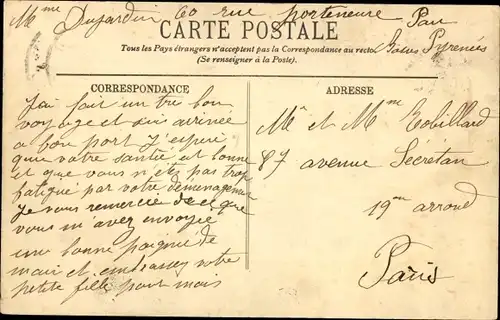 Mme Dujardin 60 rue porteneuve Pau
Basses Pyrenées
CARTE POSTALE
Tous les Pays étrangers n'acceptent pas la Correspondance au recto
(Se renseigner à la Poste).
CORRESPONDANCE
J'ai fait un tre bon
voyage et suis arrivée
a bon port J'esperé
que votre santié et bonne
et que vous n'ets pas trop
fatigué par votre déménagement
Je vous remercie de ce que
vous m'avez envoyie
une bonne poigné de
main et embrassez votre
petite fille pour mois
ADRESSE
Mr et Mme Robillard
87 avenue Sécretan
19me arrond
Paris